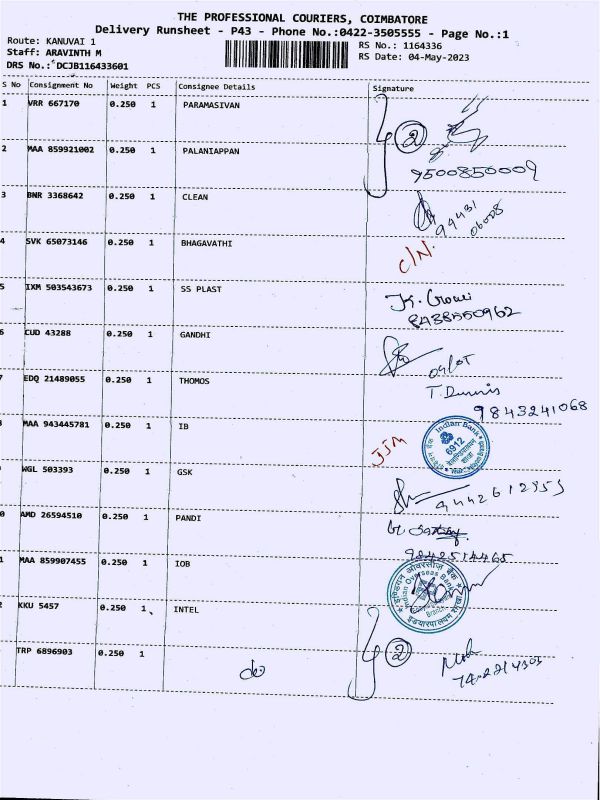 THE PROFESSIONAL COURIERS, COIMBATORE
Delivery Runsheet - P43 - Phone No.:0422-3505555 - Page No.:1
Route: KANUVAI 1
RS No.: 1164336
Staff: ARAVINTH M
RS Date: 04-May-2023
DRS No.: DCJB116433601
S No Consignment No Weight PCS Consignee Details Signature
1 VRR 667170 0.250 1 PARAMASIVAN
2
2 MAA 859921002 0.250 1 PALANIAPPAN
9500850009
3 BNR 3368642 0.250 1 CLEAN
94431
06008
4 SVK 65073146 0.250 1 BHAGAVATHI
C/N.
5 IXM 503543673 0.250 1 SS PLAST
K. Gowri
8438550962
6 CUD 43288 0.250 1 GANDHI
7 EDQ 21489055 0.250 1 THOMOS
9843241068
MAA 943445781 0.250 1 IB
Indian Bank
6912
9 WGL 503393 0.250 1 GSK
0 AMD 26594510 0.250 1 PANDI
9842514465
1 MAA 859907455 0.250 1 IOB
इण्डियन ओवरसीज़ बैंक
Indian Overseas Bank
2 KKU 5457 0.250 1 INTEL
2
TRP 6896903 0.250 1
do